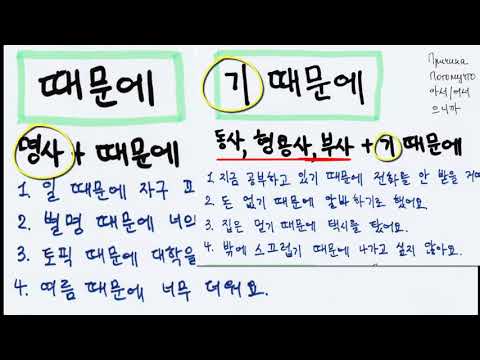 때문에
명사 + 때문에
1. 일 때문에 자구
2. 별명 때문에 너의
3. 토픽 때문에 대학을
4. 여름 때문에 너무 더워요.
기 때문에
동사, 형용사, 부사 + 기 때문에
1. 지금 공부하고 있기 때문에 전화를 안 받을 거예
2. 돈 없기 때문에 알바하기로 했어요.
3. 집은 멀기 때문에 택시를 탔어요.
4. 밖에 스끄럽기 때문에 나가고 싶지 않아요.
Причина
Потомучто
아서/어서
으니까